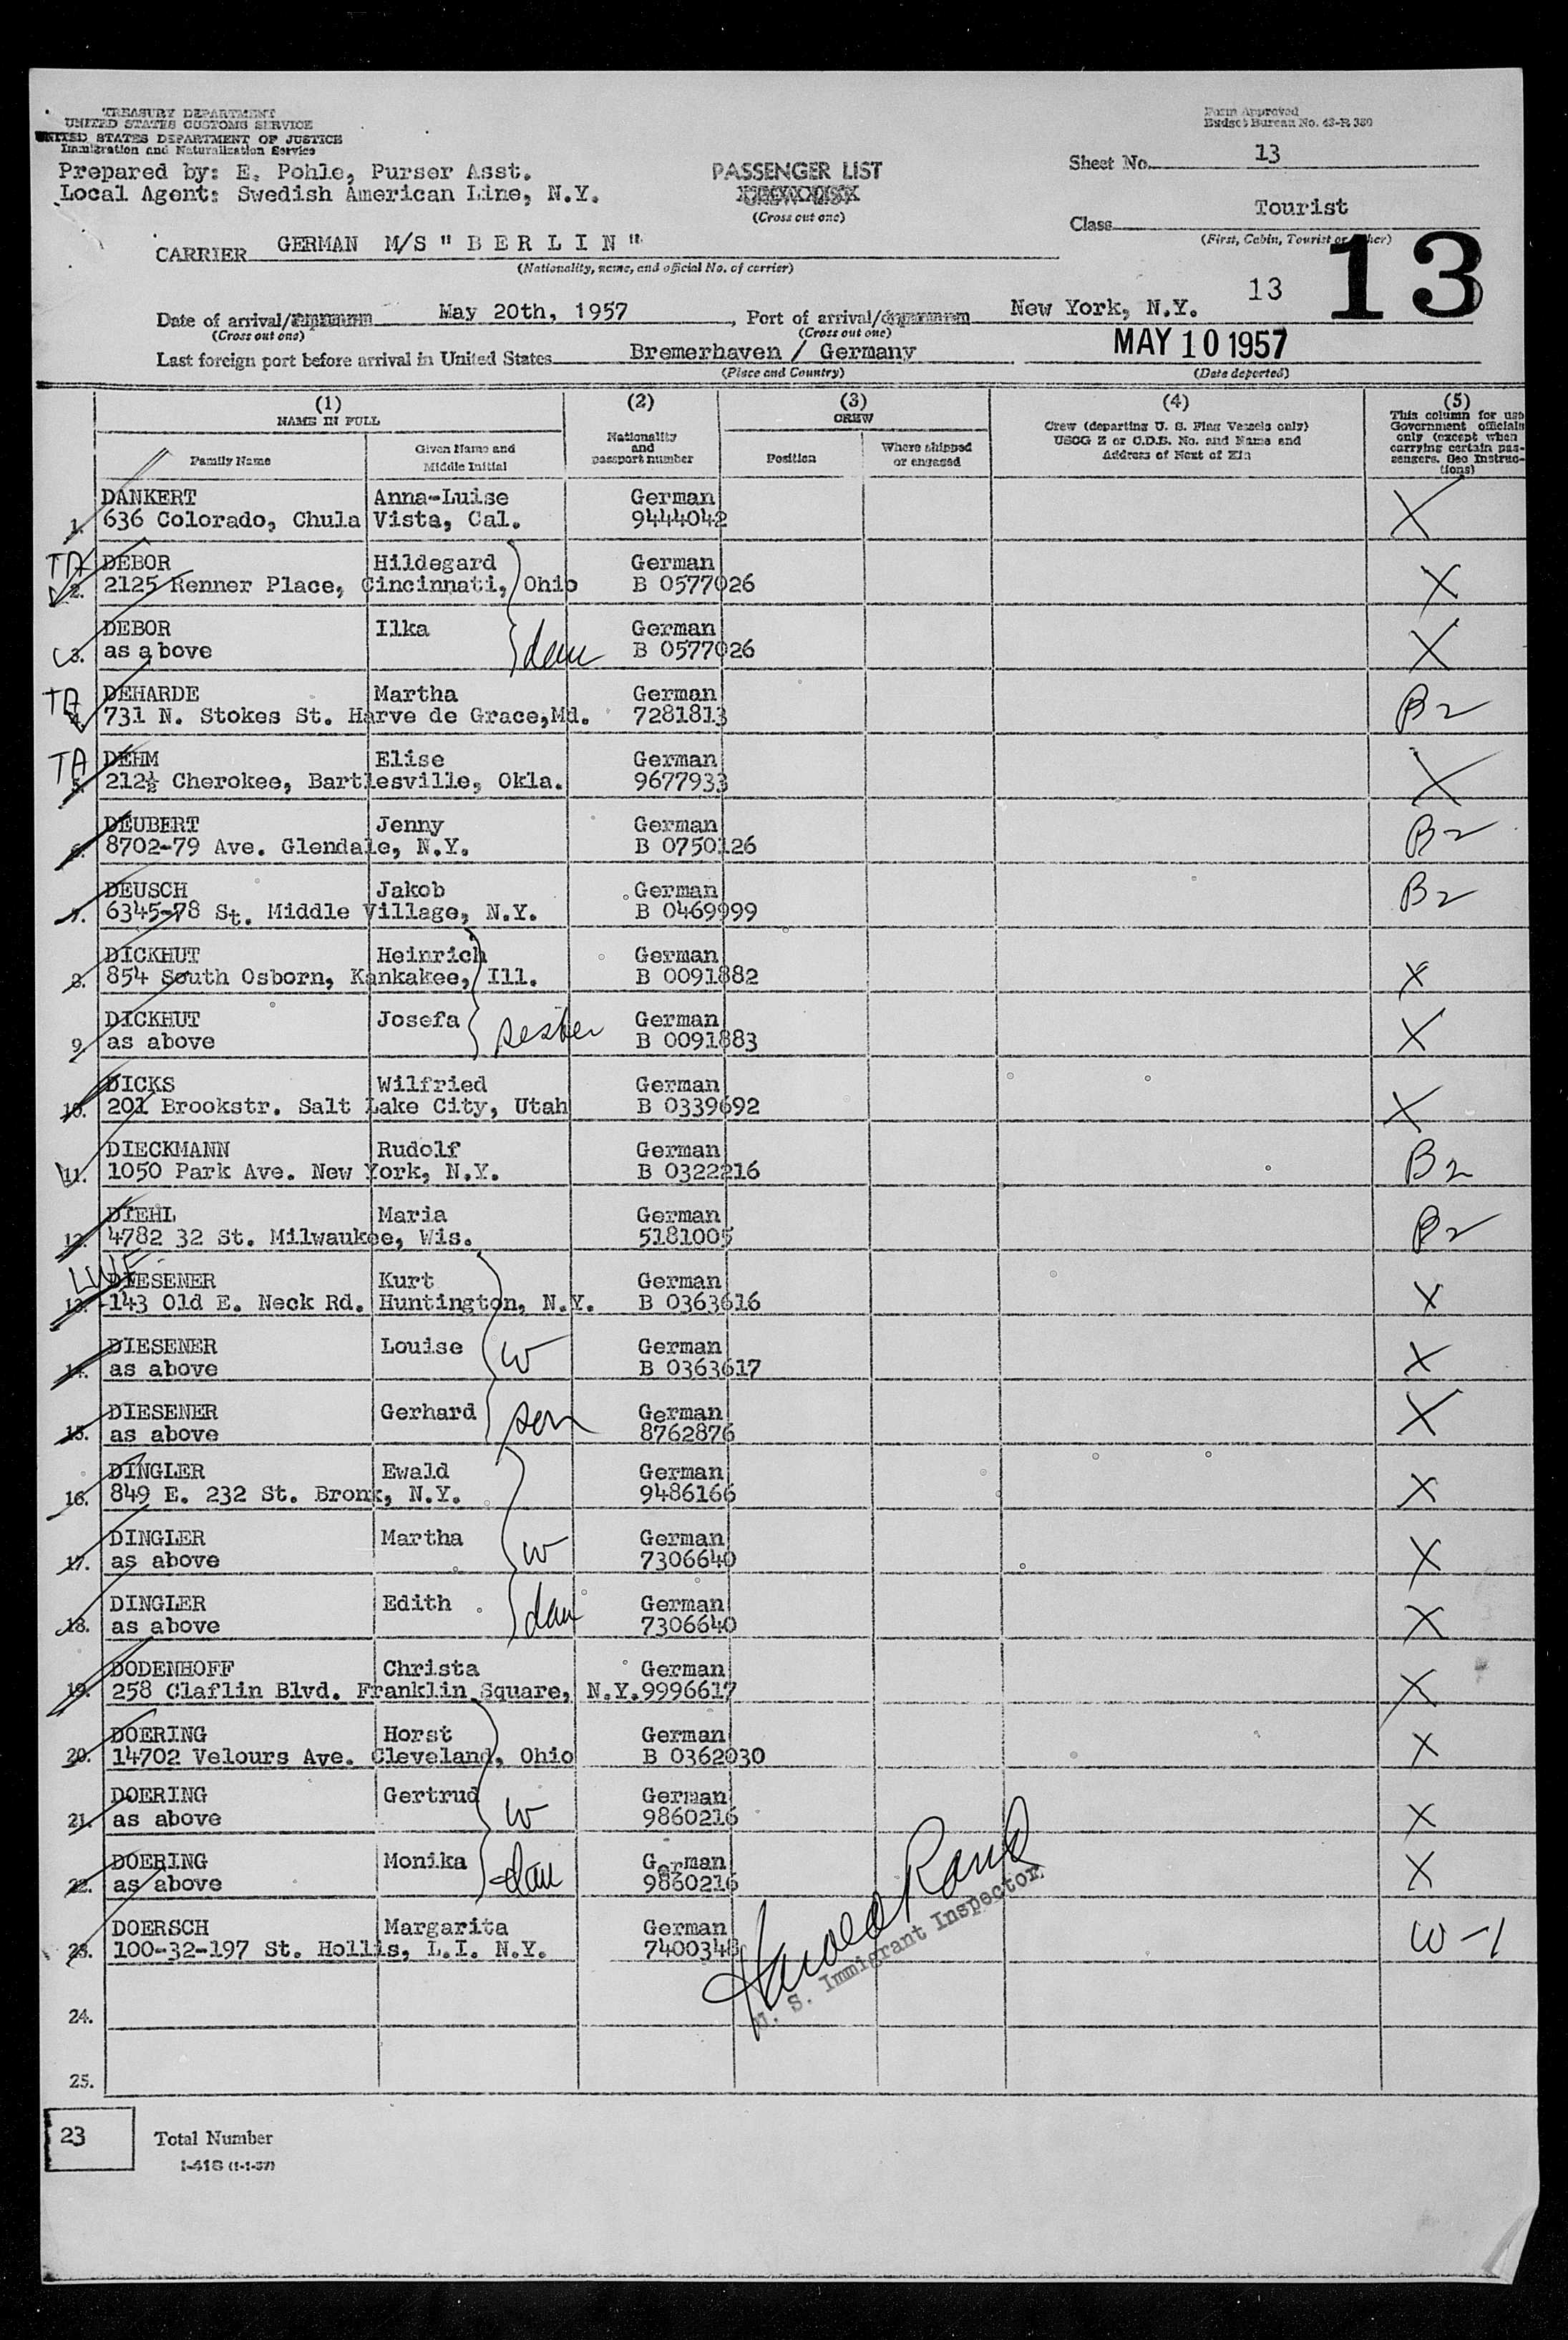 TREASURY DEPARTMENT
UNITED STATES CUSTOMS SERVICE
UNITED STATES DEPARTMENT OF JUSTICE
Immigration and Naturalization Service
Form Approved
Budget Bureau No. 43-R 380
Prepared by: E. Pohle, Purser Asst.
Local Agent: Swedish American Line, N.Y.
PASSENGER LIST
CREW LIST
(Cross out one)
Sheet No. 13
Class Tourist
(First, Cabin, Tourist or other)
13
CARRIER GERMAN M/S " B E R L I N "
(Nationality, name, and official No. of carrier)
13
Date of arrival/departure May 20th, 1957, Port of arrival/departure New York, N.Y.
(Cross out one) (Cross out one)
Last foreign port before arrival in United States Bremerhaven / Germany MAY 10 1957
(Place and Country) (Date departed)
(1) (2) (3) (4) (5)
NAME IN FULL
Family Name
Given Name and Middle Initial
Nationality and passport number
CREW
Position
Where shipped or engaged
Crew (departing U. S. Flag Vessels only)
USCG Z or C.D.B. No. and Name and
Address of Next of Kin
This column for use
Government officials
only (except when
carrying certain pas-
sengers. See Instruc-
tions)
DANKERT Anna-Luise German X
1. 636 Colorado, Chula Vista, Cal. 9444042
TA DEBOR Hildegard German X
2. 2125 Renner Place, Cincinnati, Ohio B 0577026
DEBOR Ilka German X
3. as above dau B 0577026
TA DEHARDE Martha German B2
4. 731 N. Stokes St. Harve de Grace,Md. 7281813
TA DEHM Elise German X
5. 212½ Cherokee, Bartlesville, Okla. 9677933
DEUBERT Jenny German B2
6. 8702-79 Ave. Glendale, N.Y. B 0750126
DEUSCH Jakob German B2
7. 6345-78 St. Middle Village, N.Y. B 0469999
DICKHUT Heinrich German X
8. 854 South Osborn, Kankakee, Ill. B 0091882
DICKHUT Josefa German X
9. as above sester B 0091883
DICKS Wilfried German X
10. 201 Brookstr. Salt Lake City, Utah B 0339692
DIECKMANN Rudolf German B2
11. 1050 Park Ave. New York, N.Y. B 0322216
DIEHL Maria German B2
12. 4782 32 St. Milwaukee, Wis. 5181005
LWF DIESENER Kurt German X
13. 143 Old E. Neck Rd. Huntington, N.Y. B 0363616
DIESENER Louise German X
14. as above W B 0363617
DIESENER Gerhard German X
15. as above son 8762876
DINGLER Ewald German X
16. 849 E. 232 St. Bronx, N.Y. 9486166
DINGLER Martha German X
17. as above W 7306640
DINGLER Edith German X
18. as above dau 7306640
DODENHOFF Christa German X
19. 258 Claflin Blvd. Franklin Square, N.Y. 9996617
DOERING Horst German X
20. 14702 Velours Ave. Cleveland, Ohio B 0362030
DOERING Gertrud German X
21. as above W 9860216
DOERING Monika German X
22. as above dau 9860216
DOERSCH Margarita German W-1
23. 100-32-197 St. Hollis, L.I. N.Y. 7400348
Harold Rank
U. S. Immigrant Inspector
24.
25.
23 Total Number
I-418 (1-1-57)